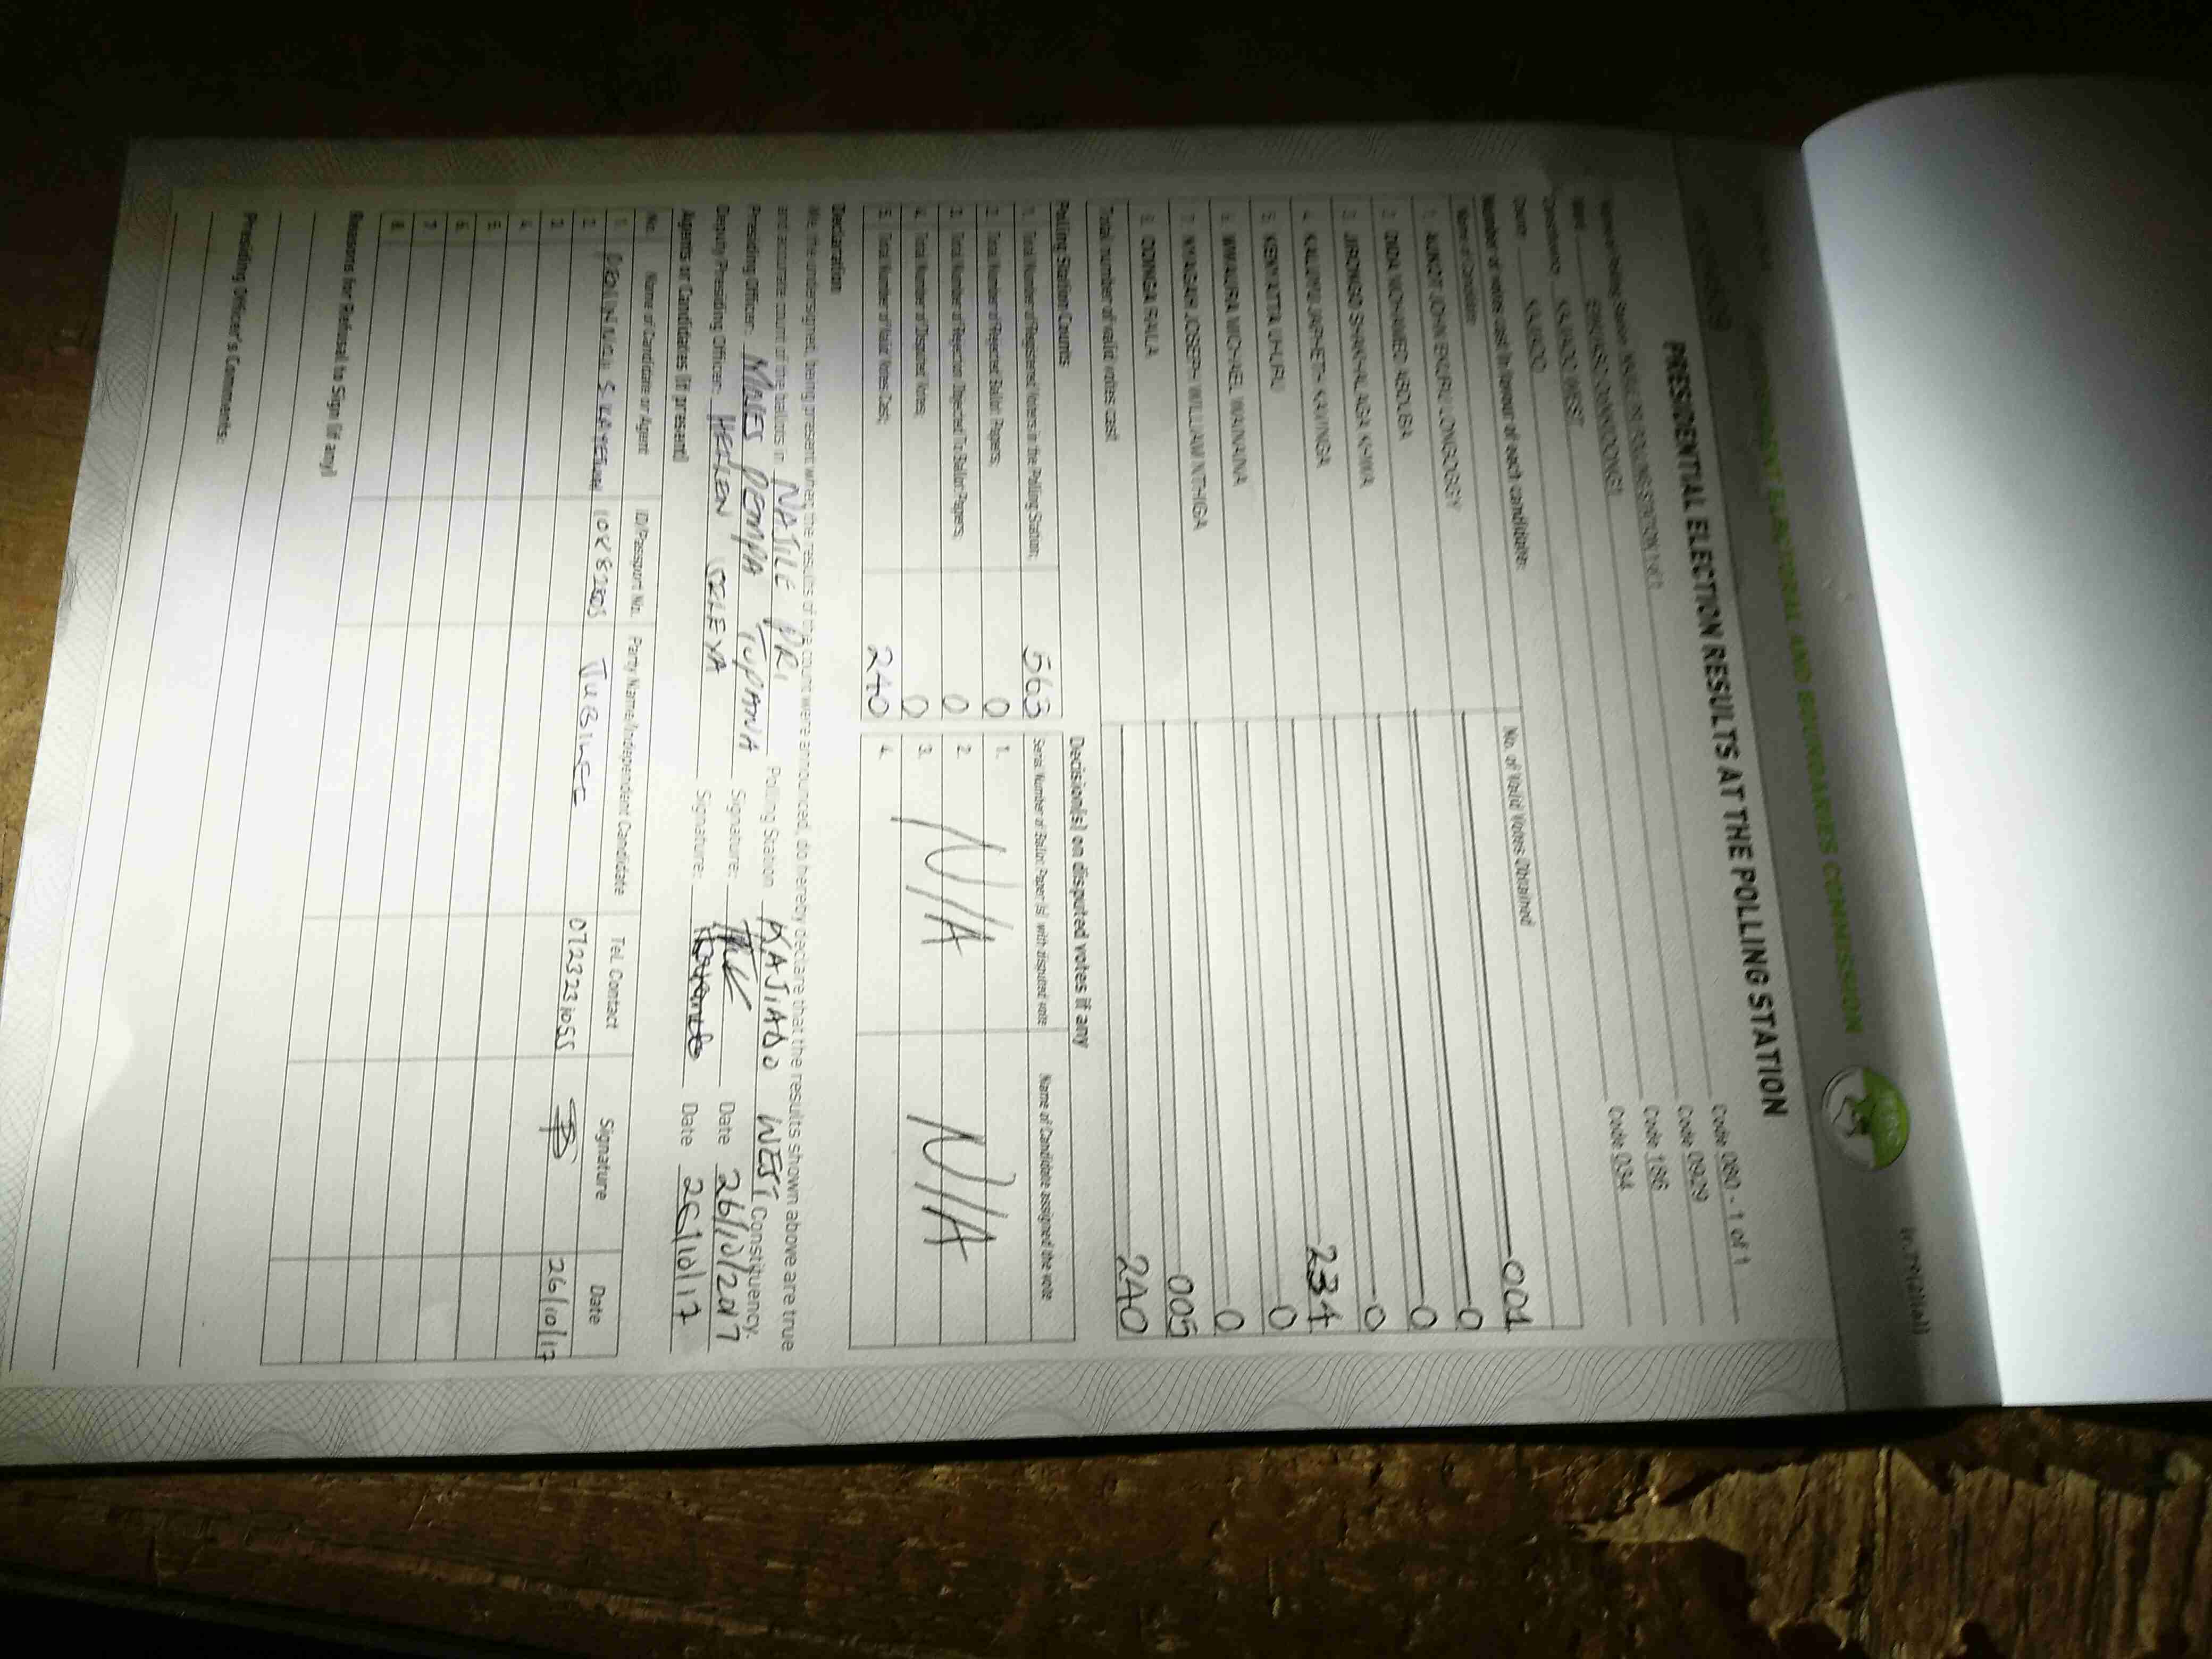 INDEPENDENT ELECTORAL AND BOUNDARIES COMMISSION
PRESIDENTIAL ELECTION RESULTS AT THE POLLING STATION
Name of Polling Station Code 080 - 1 of 1
Ward Code 0929
Constituency KAJIADO WEST Code 186
County KAJIADO Code 034
Number of votes cast in favour of each candidate:
Name of Candidate No. of Valid Votes Obtained
1. AUKOT JOHN EKURU LONGOGGY 001
2. DIDA MOHAMED ABDUBA 0
3. JIRONGO SHAKHALAGA KHWA 0
4. KALUYU JAPHETH KAVINGA 0
5. KENYATTA UHURU 234
6. MWAURA MICHAEL WAINAINA 0
7. NYAGAH JOSEPH WILLIAM NTHIGA 0
8. ODINGA RAILA 005
Total number of valid votes cast 240
Polling Station Counts
1. Total Number of Registered Voters in the Polling Station; 563
2. Total Number of Rejected Ballot Papers; 0
3. Total Number of Rejection Objected To Ballot Papers; 0
4. Total Number of Disputed Votes; 0
5. Total Number of Valid Votes Cast; 240
Decision(s) on disputed votes if any
Serial Number of Ballot Paper(s) with disputed vote Name of Candidate assigned the vote
1.
2.
3. N/A N/A
4.
Declaration
We, the undersigned, being present when the results of the count were announced, do hereby declare that the results shown above are true
and accurate count of the ballots in NAJILE PRI, Polling Station KAJIADO WEST Constituency.
Presiding Officer: MOSES TUPANIA Signature: Date 26/10/2017
Deputy Presiding Officer: HELLEN Signature: Date 26/10/17
Agents or Candidates (if present)
No. Name of Candidate or Agent ID/Passport No. Party Name/Independent Candidate Tel. Contact Signature Date
1. JUBILEE 0723231055 26/10/17
2.
3.
4.
5.
6.
7.
8.
Reasons for Refusal to Sign (if any)
Presiding Officer's Comments: